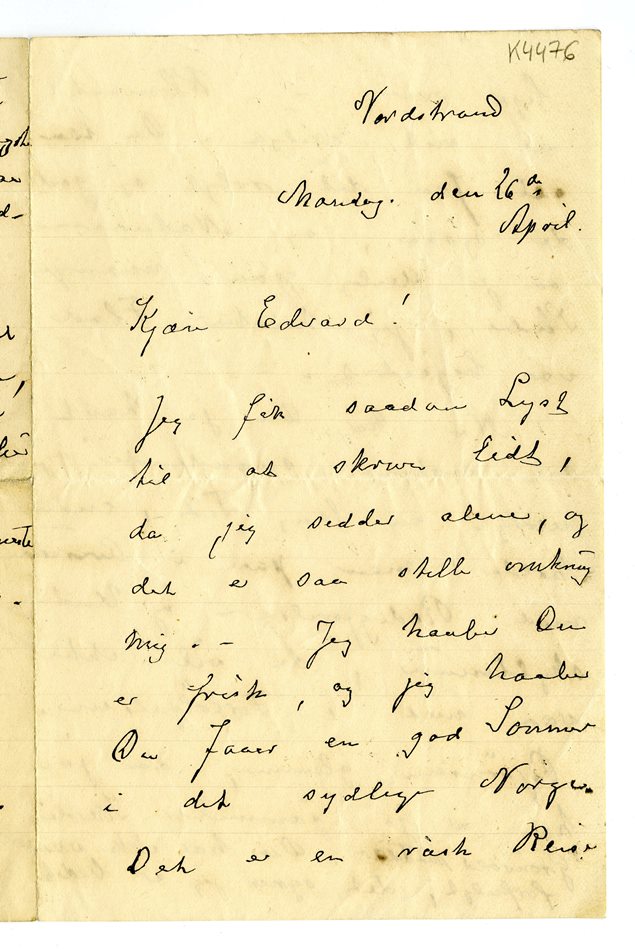 K4476
Nordstrand
Mandag. den 26de
April.
Kjære Edvard!
Jeg fik saadan Lyst
til at skrive lidt,
da jeg sidder alene, og
det er saa stille omkring
mig. - Jeg haaber Du
er frisk, og jeg haaber
Du faaer en god Sommer
i det sydlige Norge.
Det er en rask Reise